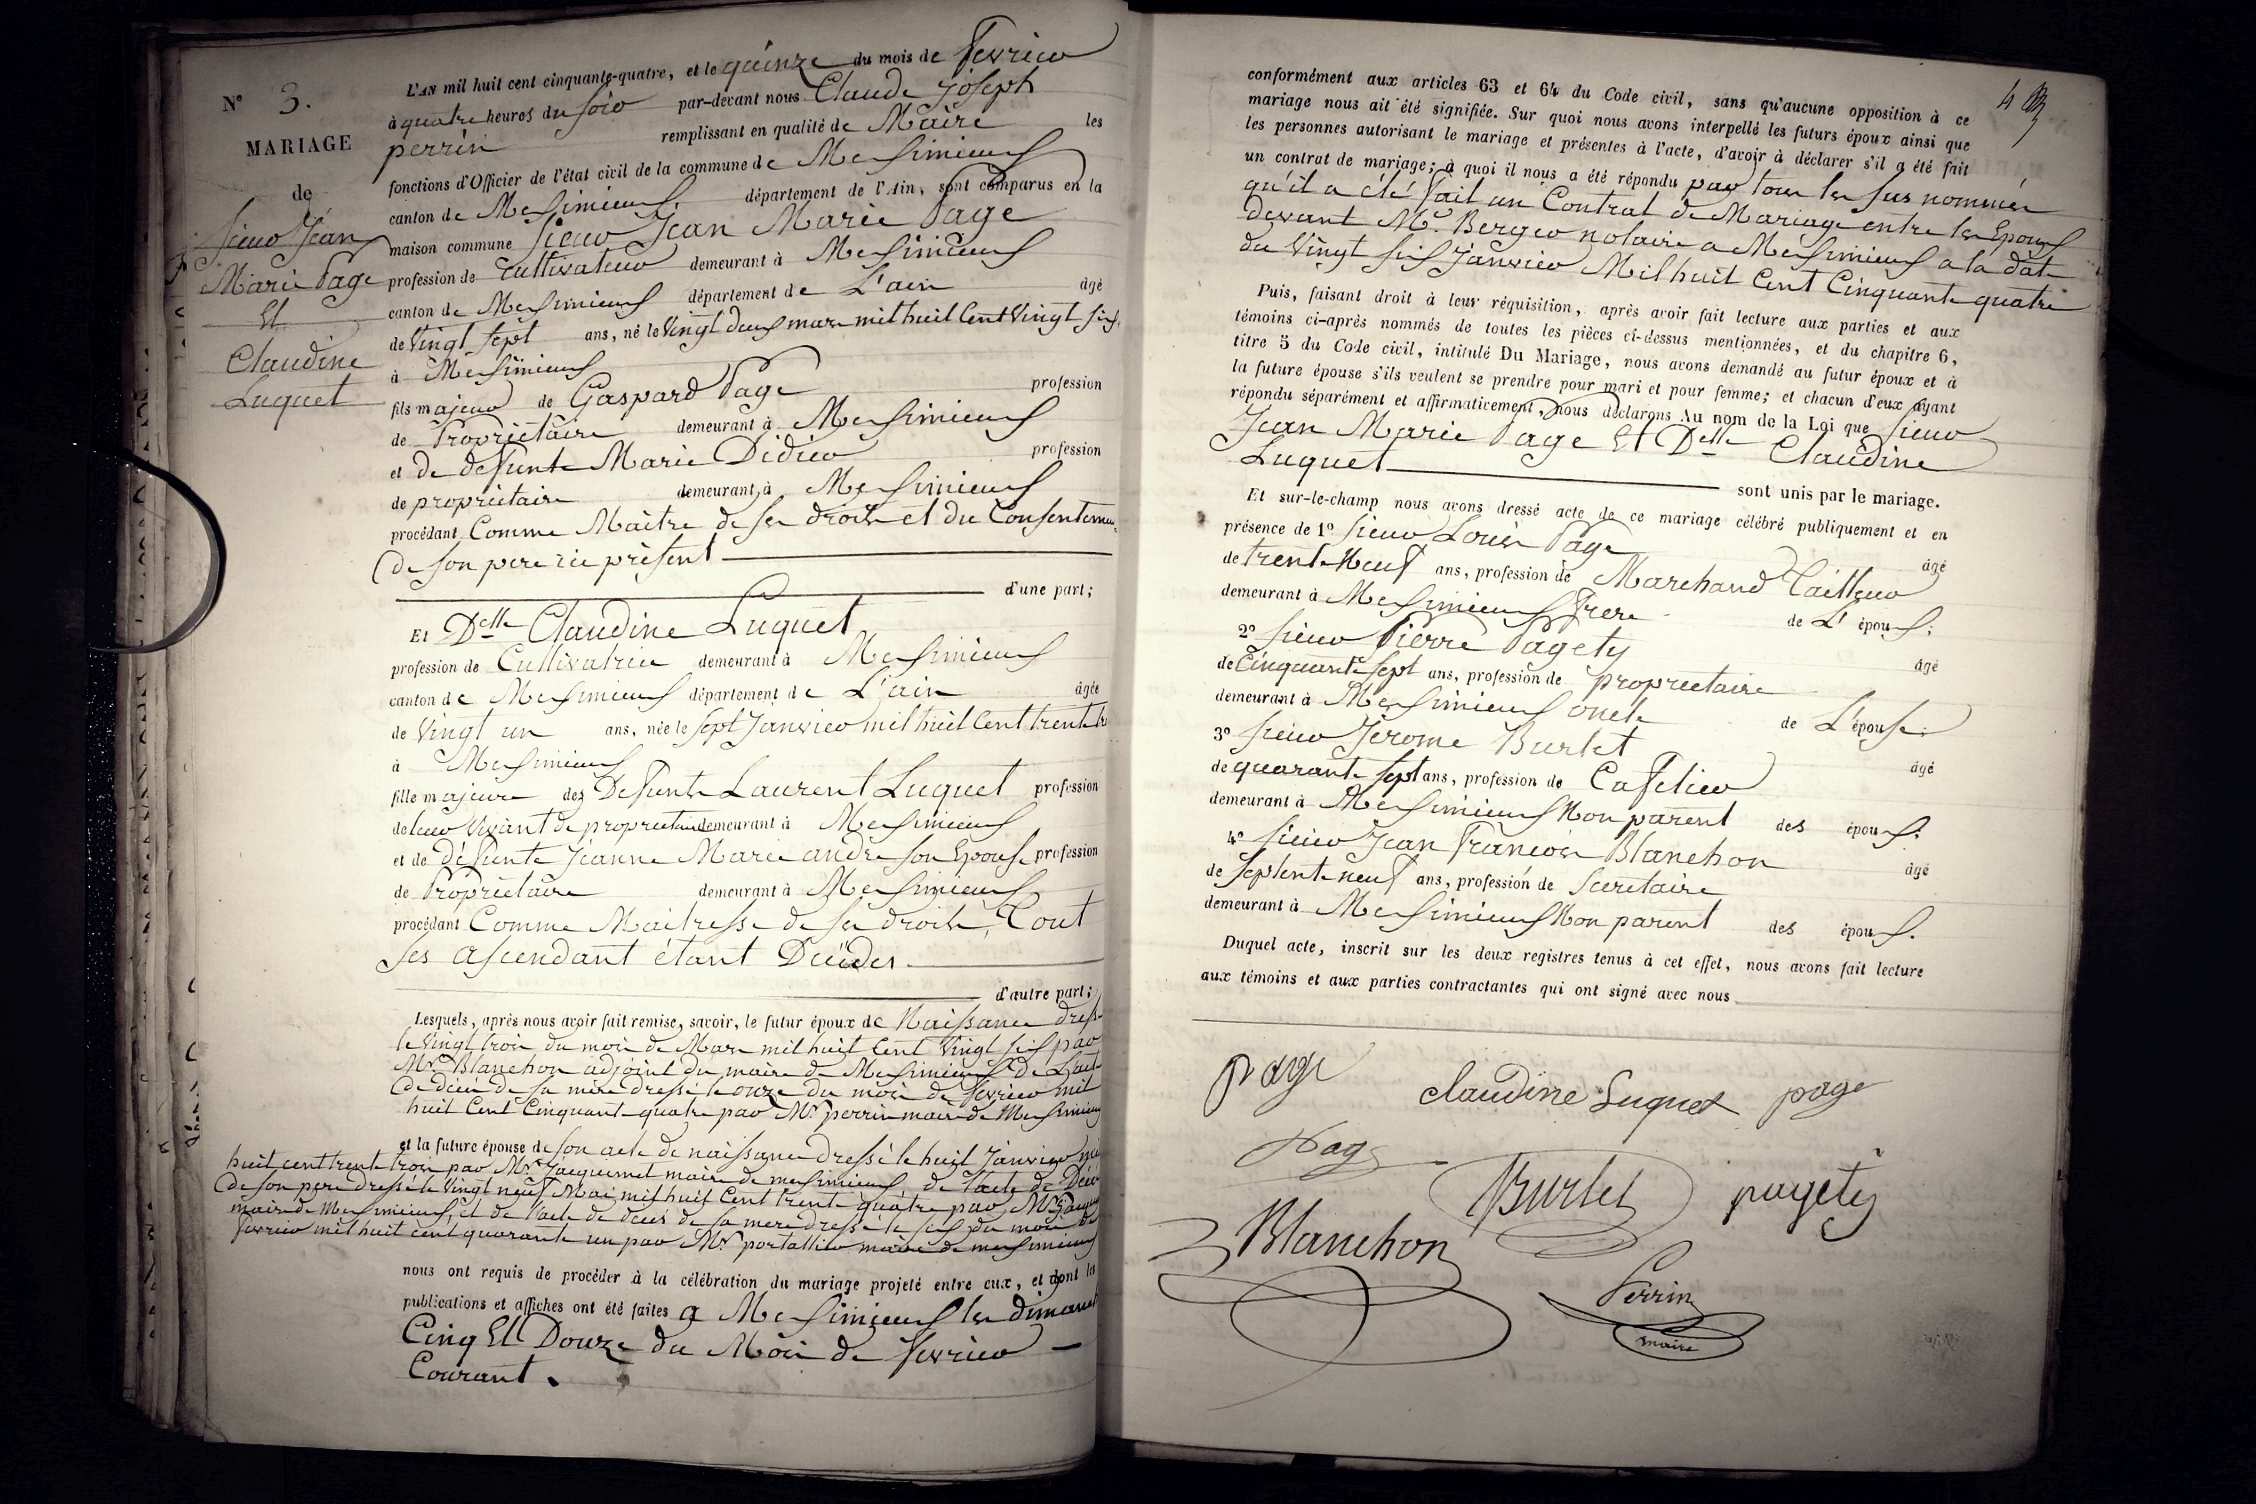 N° 3.
MARIAGE
de
sieur Jean
Marie Page
Et
Claudine
Luquet
L'AN mil huit cent cinquante-quatre, et le quinze du mois de Fevrier
à quatre heures du soir par-devant nous Claude Joseph
perrin remplissant en qualité de Maire les
fonctions d'Officier de l'état civil de la commune de Messimieux
canton de Messimieux département de l'Ain, sont comparus en la
maison commune sieur Jean Marie Page
profession de Cultivateur demeurant à Messimieux
canton de Messimieux département de L'ain âgé
de Vingt sept ans, né le Vingt deux mars mil huit Cent Vingt six
à Messimieux
fils majeur de Gaspard Page profession
de Propriétaire demeurant à Messimieux
et de defunte Marie Didier profession
de propriétaire demeurant à Messimieux
procédant Comme Maître de ses droits et du Consentement
de son pere ici présent
d'une part;
Et Delle Claudine Luquet
profession de Cultivatrice demeurant à Messimieux
canton de Messimieux département de L'ain âgée
de Vingt un ans, née le sept Janvier mil huit Cent trente
à Messimieux
fille majeure des Defunts Laurent Luquet profession
de leur Vivant de propriétaire demeurant à Messimieux
et de défunte Jeanne Marie andré son Epouse profession
de Propriétaire demeurant à Messimieux
procédant Comme Maitresse de ses droits, Tout
ses ascendant étant Décédés
d'autre part;
Lesquels, après nous avoir fait remise, savoir, le futur époux de Naissance dressé
le Vingt trois du mois de Mars mil huit Cent Vingt six par
Mr Blanchon adjoint du maire de Messimieux de L'acte
de décés de sa mère dressé le onze du mois de fevrier mil
huit Cent Cinquante quatre par Mr perrin maire de Messimieux
et la future épouse de son acte de naissance dressé le huit Janvier mil
huit cent trente trois par Mr Jacquemet maire de messimieux de l'acte de Décés
de son pere dressé le Vingt neuf Mai mil huit Cent trente quatre par Mr
maire de Messimieux, et de l'acte de décés de sa mere dressé le six du mois de
Fevrier mil huit cent quarante un par Mr portallier maire de messimieux
nous ont requis de procéder à la célébration du mariage projeté entre eux, et dont les
publications et affiches ont été faites a Messimieux les dimanches
Cinq Et Douze du Mois de Fevrier
Courant.
4
conformément aux articles 63 et 64 du Code civil, sans qu'aucune opposition à ce
mariage nous ait été signifiée. Sur quoi nous avons interpellé les futurs époux ainsi que
les personnes autorisant le mariage et présentes à l'acte, d'avoir à déclarer s'il a été fait
un contrat de mariage; à quoi il nous a été répondu par tous les sus nommés
qu'il a été fait un Contrat de Mariage entre les Epoux
devant Me. Berger notaire a Messimieux a la date
du Vingt six Janvier Mil huit Cent Cinquante quatre
Puis, faisant droit à leur réquisition, après avoir fait lecture aux parties et aux
témoins ci-après nommés de toutes les pièces ci-dessus mentionnées, et du chapitre 6,
titre 5 du Code civil, intitulé Du Mariage, nous avons demandé au futur époux et à
la future épouse s'ils veulent se prendre pour mari et pour femme; et chacun d'eux ayant
répondu séparément et affirmativement, nous déclarons Au nom de la Loi que sieur
Jean Marie Page Et Delle Claudine
Luquet sont unis par le mariage.
Et sur-le-champ nous avons dressé acte de ce mariage célébré publiquement et en
présence de 1° sieur Louis Page âgé
de trente Neuf ans, profession de Marchand Tailleur
demeurant à Messimieux Frere de L' époux;
2° sieur Pierre Pagety âgé
de Cinquante sept ans, profession de propriétaire
demeurant à Messimieux oncle de L'épouse;
3° sieur Jerome Burlet âgé
de quarante sept ans, profession de Cafetier
demeurant à Messimieux Non parent des époux;
4° sieur Jean François Blanchon âgé
de Septente neuf ans, profession de Secretaire
demeurant à Messimieux Non parent des époux.
Duquel acte, inscrit sur les deux registres tenus à cet effet, nous avons fait lecture
aux témoins et aux parties contractantes qui ont signé avec nous
page
claudine Luquet page
Page
Burlet pagety
Blanchon
Perrin
maire